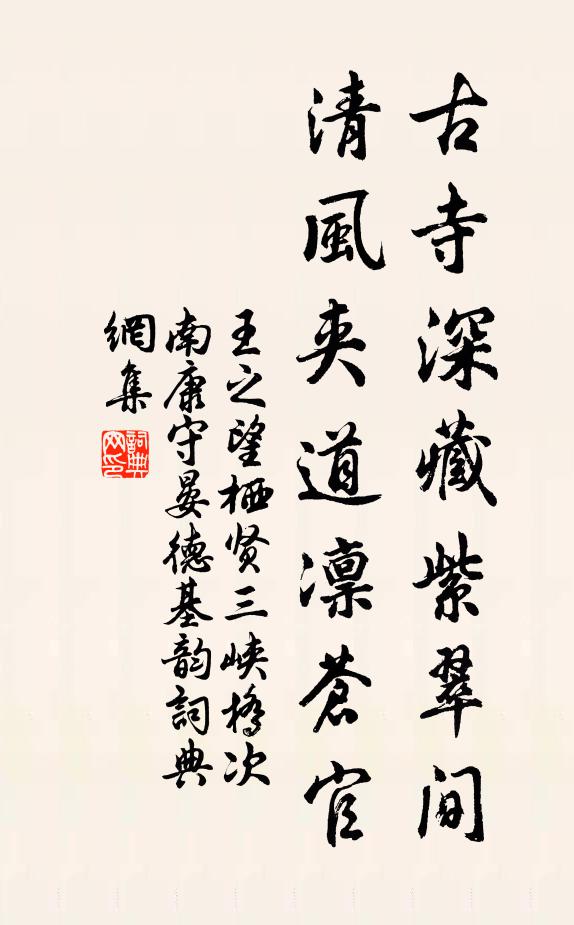 古寺深藏紫翠间
清風夹道凛蒼官
王之望栖贤三峡橋次
南康守晏德基韵詞典
網集
詞典
网印